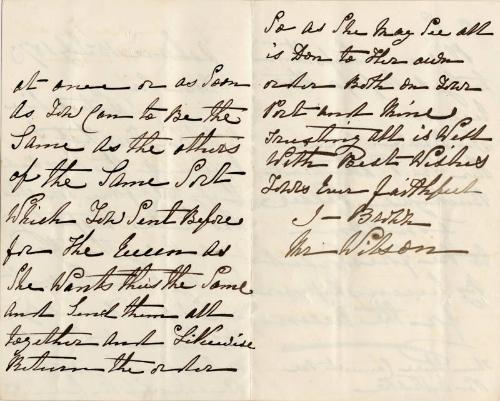 at once or as Soon
As You Can to Be the
Same as the others
of the Same Sort
Which You Sent Before
for The Queen as
She Wants this the Same
and Send them all
together and Likewise
Return the order
So as She May See all
is Don to Her own
order Both on Your
Part and Mine
Trusting All is Well
With Best Wishes
Yours Ever faithfull
J - Brown
Mr. Wilson